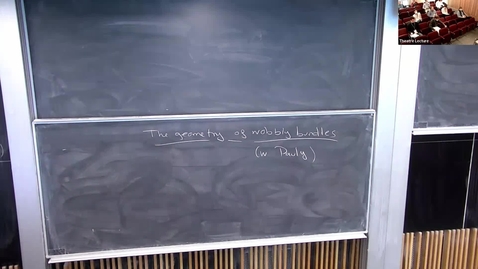 The geometry of wobbly bundles
(w Pauly)
Theatre Lecture